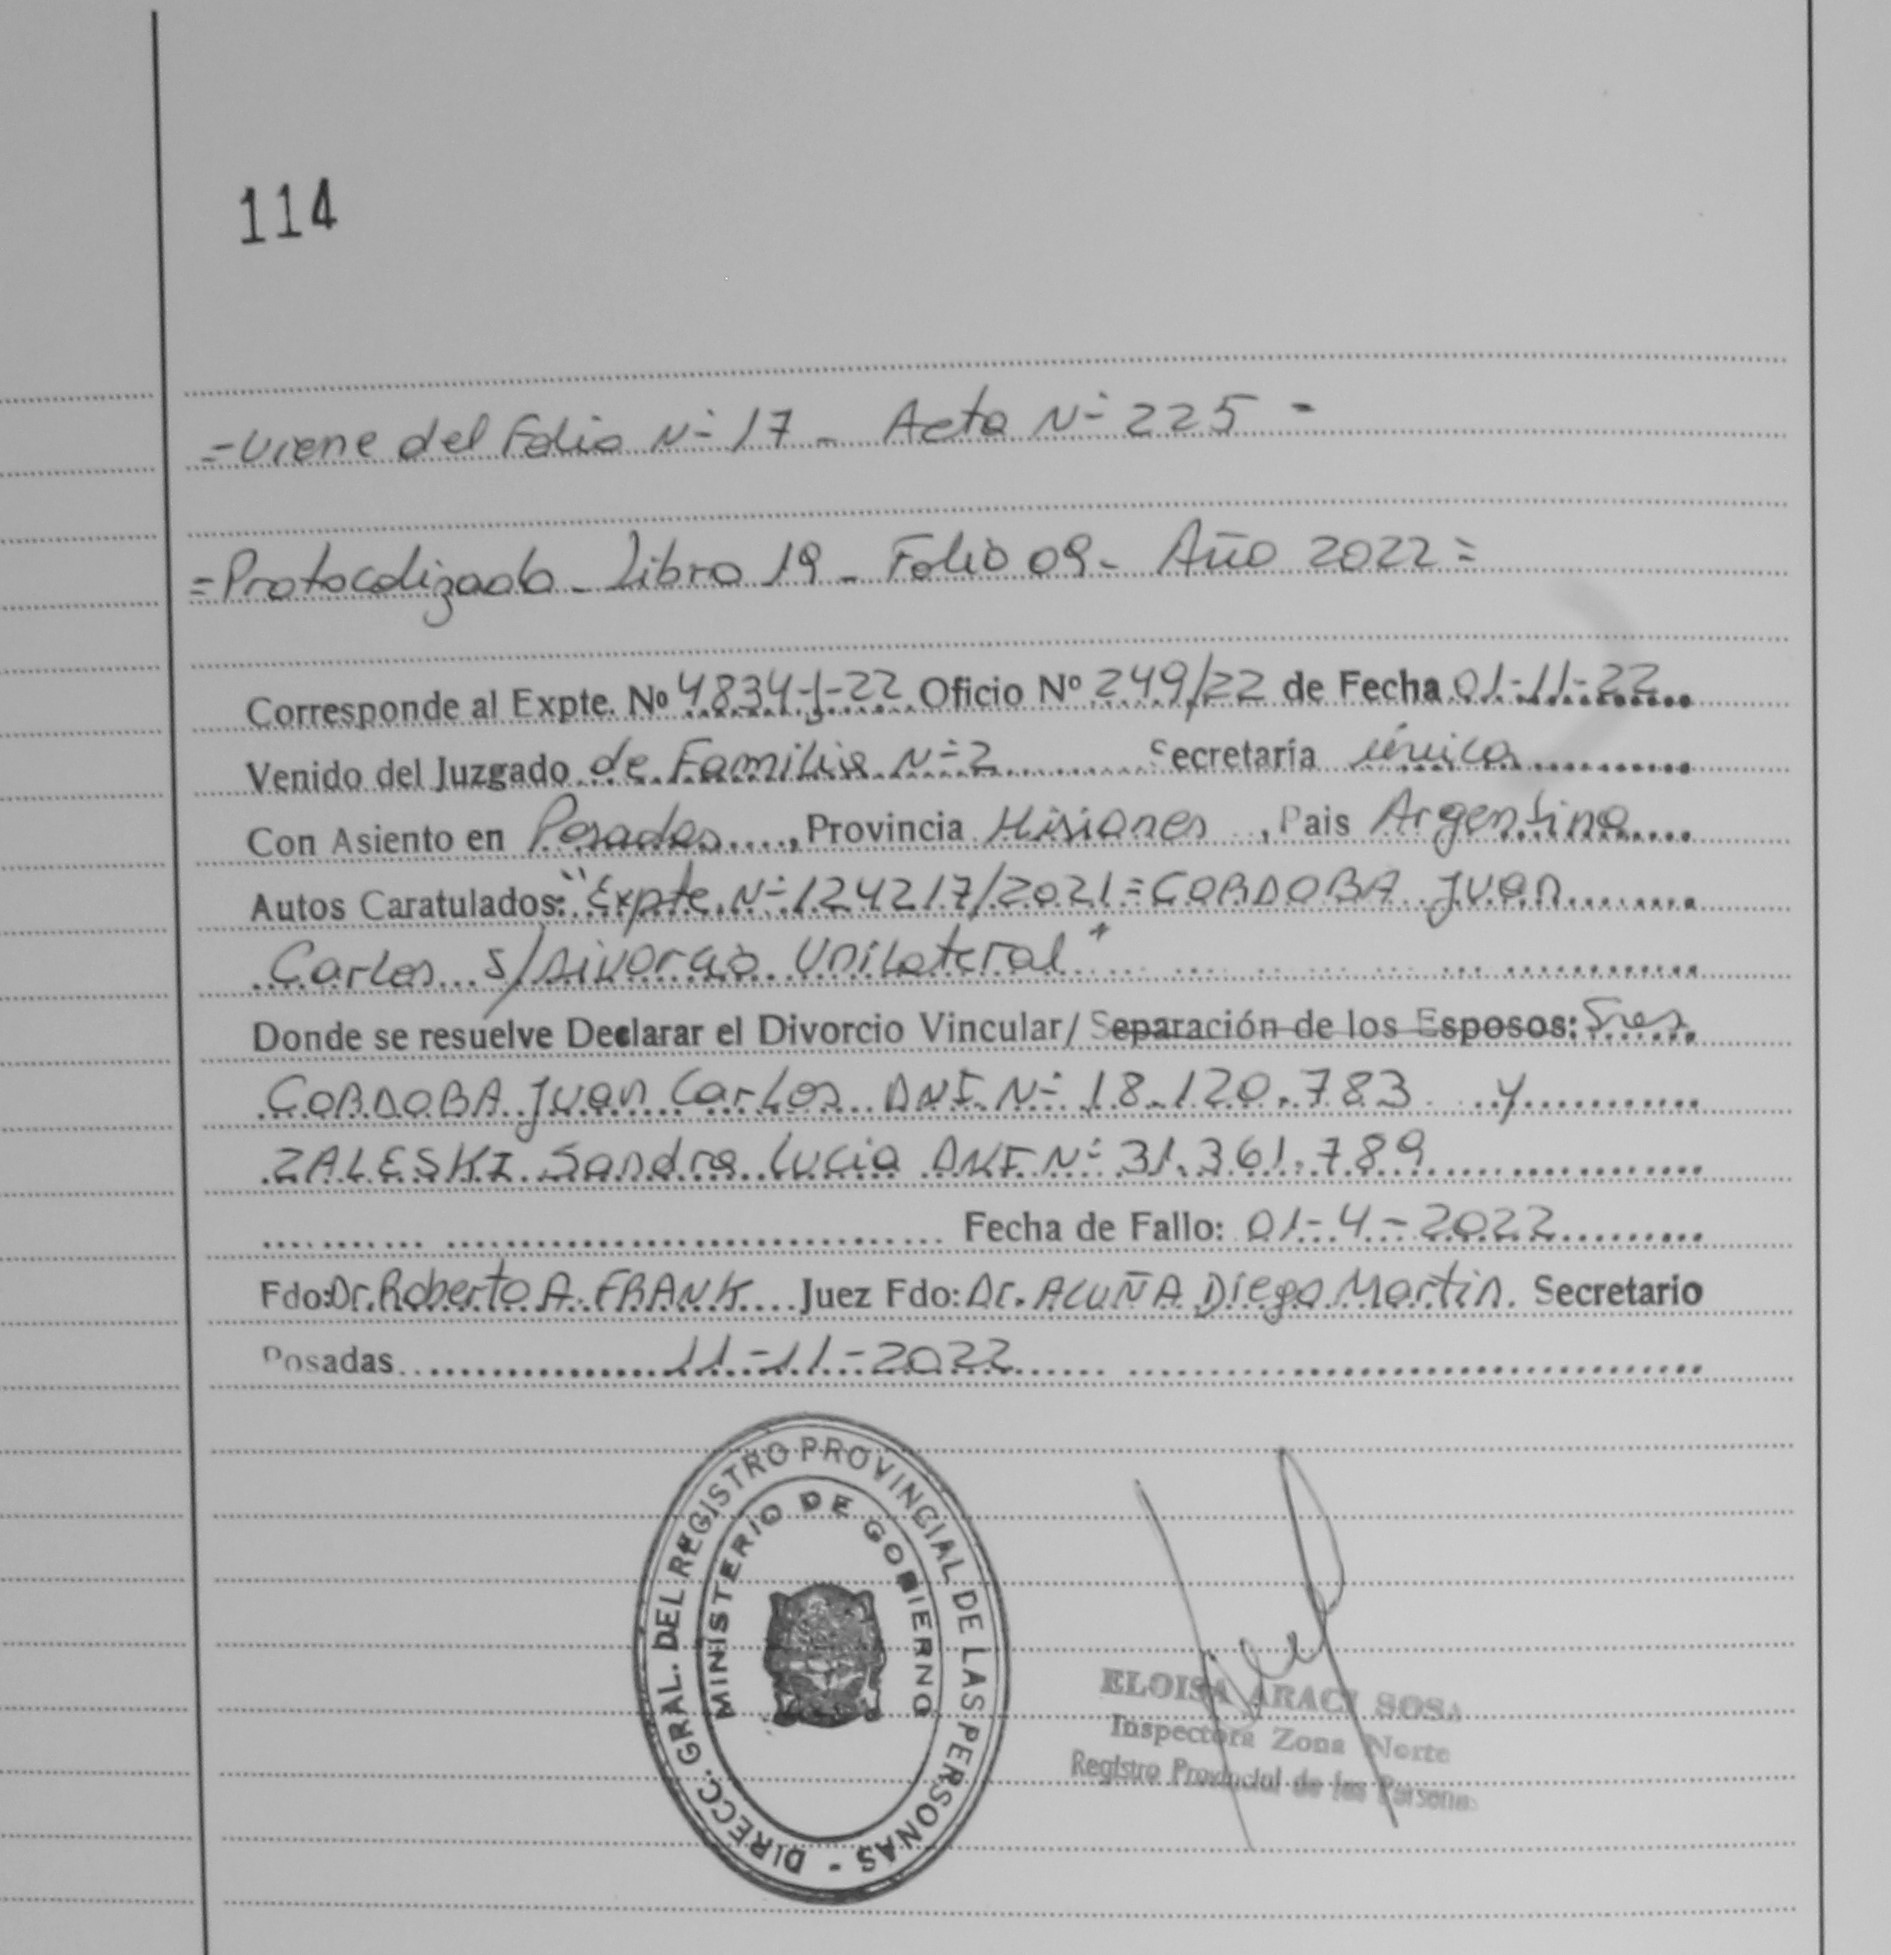 114
=Viene del Folio Nº 17 - Acta Nº 225 -
=Protocolizado - Libro 19 - Folio 09 - Año 2022 =
Corresponde al Expte. Nº 4834-J-22 Oficio Nº 249/22 de Fecha 01-11-22
Venido del Juzgado de Familia Nº 2 Secretaría única
Con Asiento en Posadas, Provincia Misiones, Pais Argentina
Autos Caratulados: "Expte. Nº 124217/2021 = CORDOBA Juan
Carlos s/Divorcio Unilateral"
Donde se resuelve Declarar el Divorcio Vincular/ Separación de los Esposos: Sres.
CORDOBA Juan Carlos DNI Nº 18.120.783 y
ZALESKI Sandra Lucia DNI Nº 31.361.789
Fecha de Fallo: 01-4-2022
Fdo: Dr. Roberto A. FRANK Juez Fdo: Dr. ACUÑA Diego Martin. Secretario
Posadas 11-11-2022
DIRECC. GRAL. DEL REGISTRO PROVINCIAL DE LAS PERSONAS -
MINISTERIO DE GOBIERNO
ELOISA ARACI SOSA
Inspectora Zona Norte
Registro Provincial de las Personas